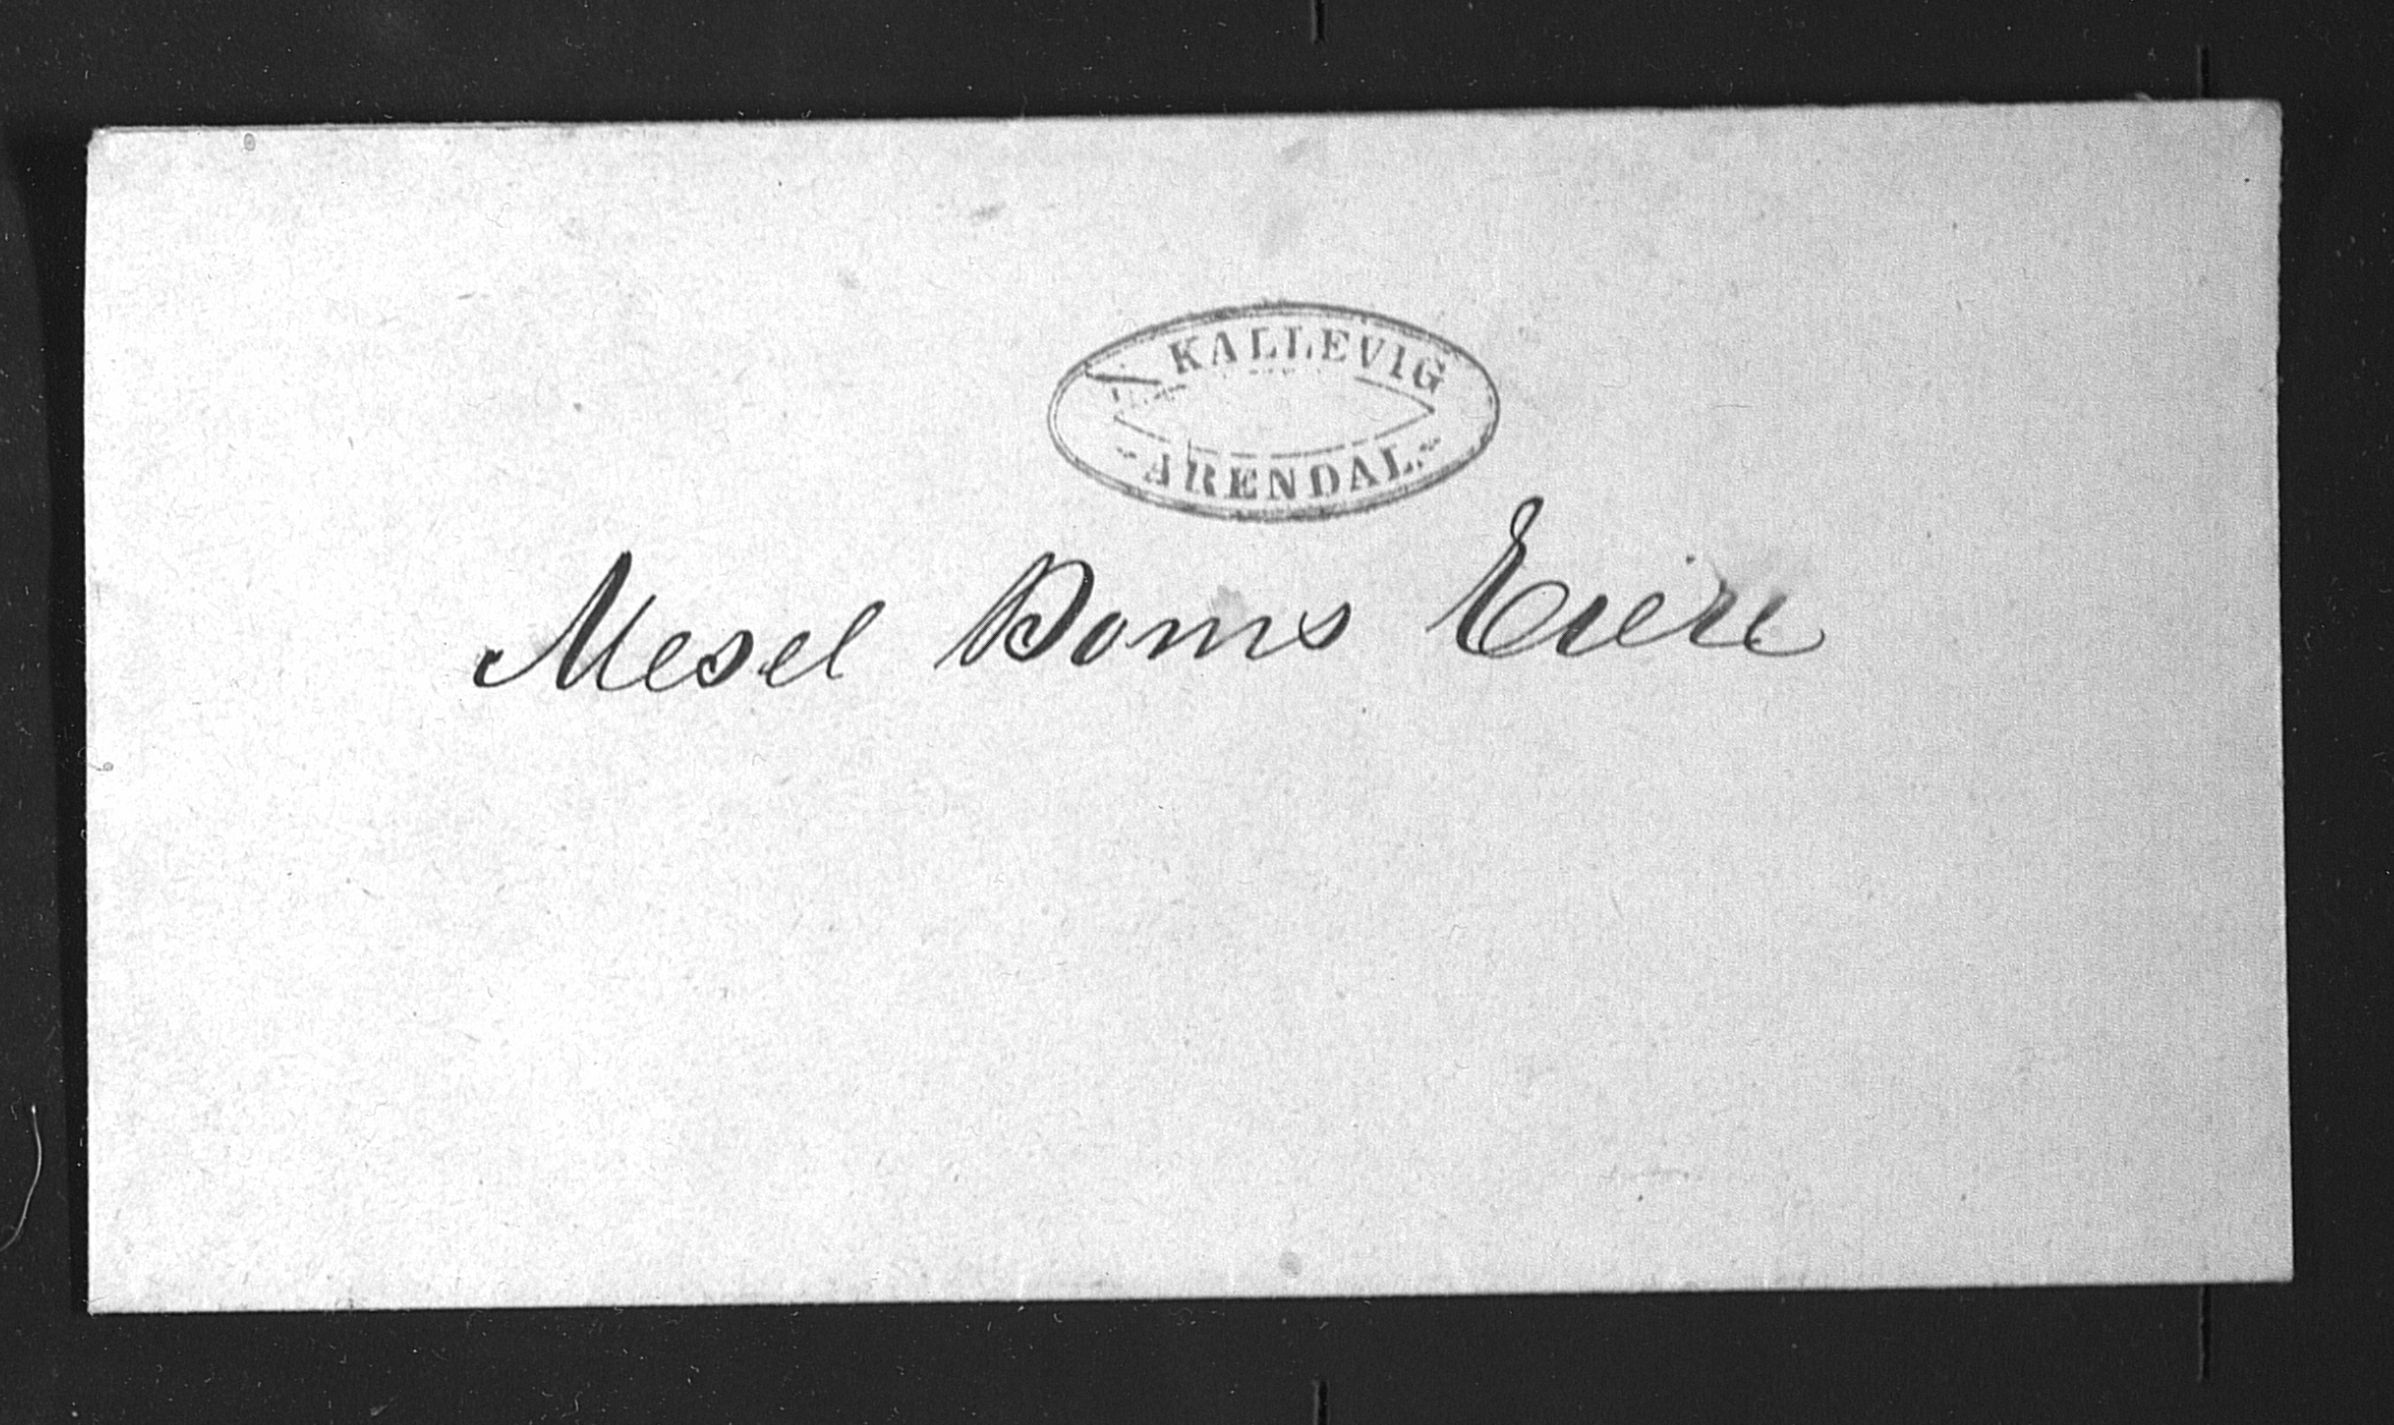 KALLEVIG
ARENDAL.
Mesel Doms Eiere